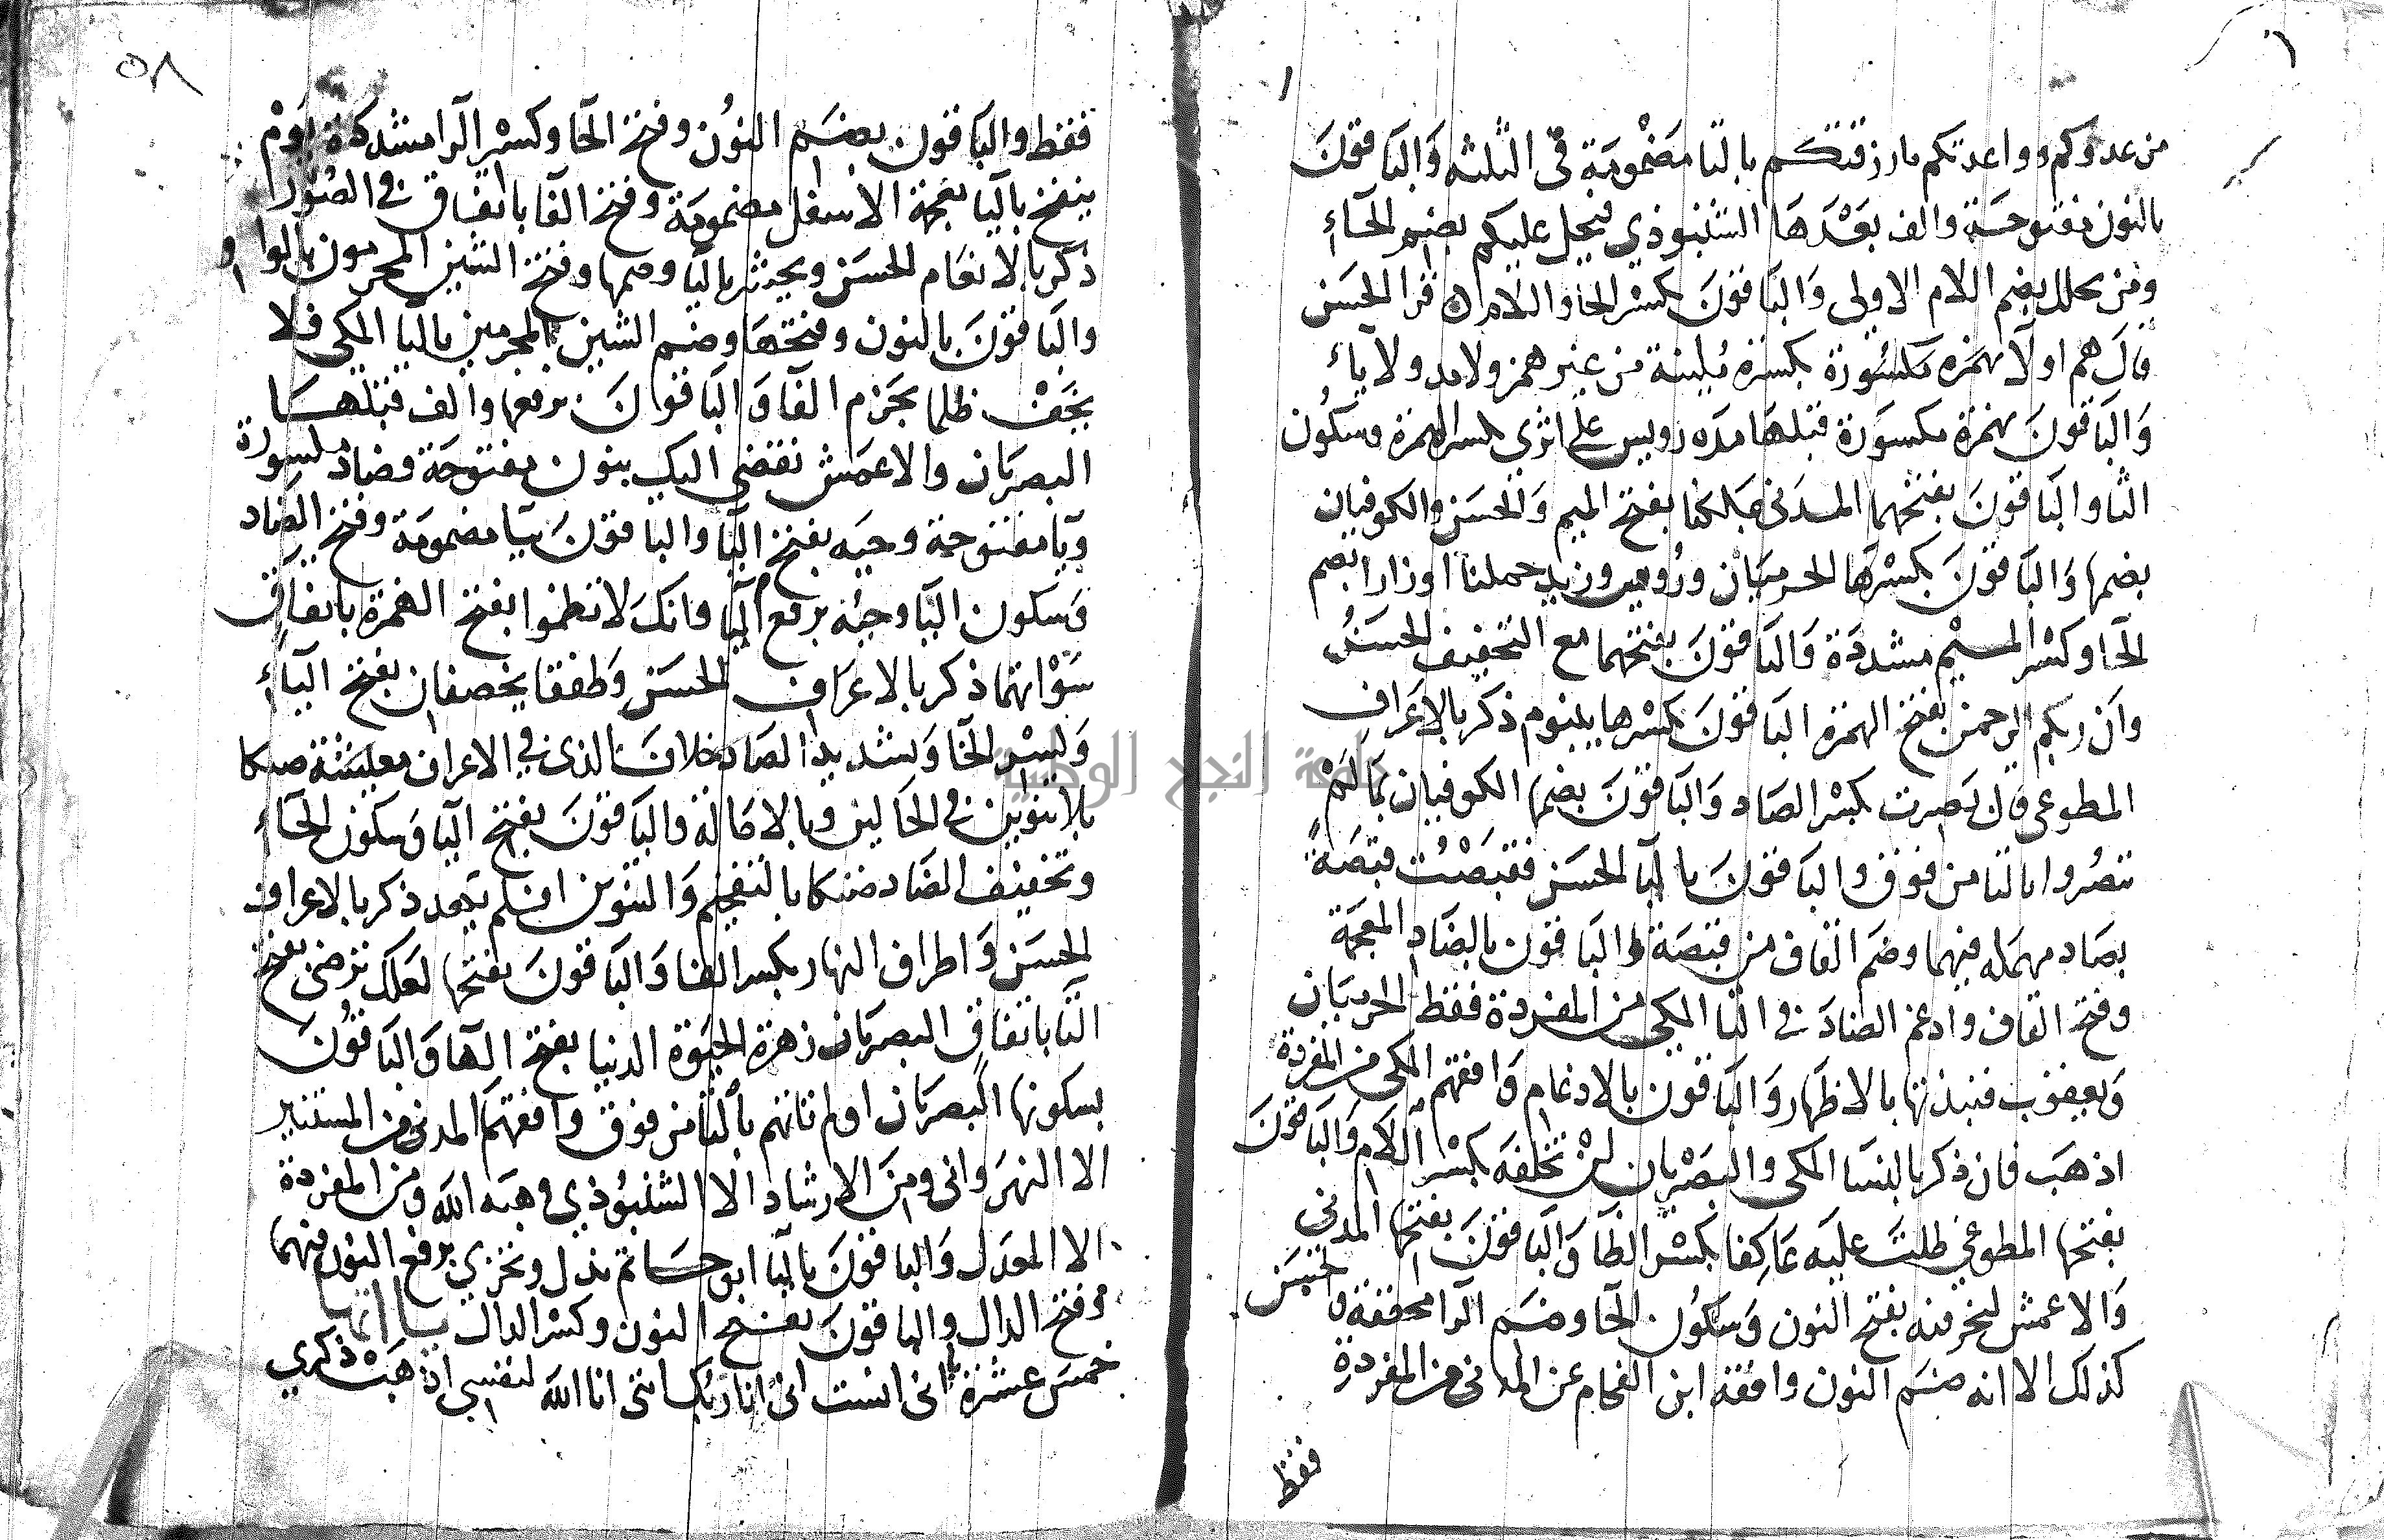 من عدوكم وواعدتكم ما رزقتكم بالتا مضمومة في الثلثه والباقون
بالنون مفتوحة والف بعدها الشنبوذي فيحل عليكم بضم الحآء
ومن يحلل بضم اللام الاولى والباقون بكسر الحا واللام قرا الحسن
قال هم اولآ بهمزه مكسورة بكسرة مليئة من غير همز ولا مد ولا ياء
والباقون بهمزة مكسورة قبلها مده رويس على اثري بكسر الهمزة وسكون
الثا والباقون بفتحهما المدني بملكنا بفتح الميم والحسن والكوفيان
بضمها والباقون بكسرها الحرميان ورويس وزيد حملنا اوزارا بضم
الحا وكسر الميم مشددة والباقون بفتحهما مع التخفيف الحسن
وان ربكم الرحمن بفتح الهمزة الباقون بكسرها يبنوم ذكر بالاعراف
المطوعي قال بصرت بكسر الصاد والباقون بضمها الكوفيان بما لم
تبصروا بالتا من فوق والباقون باليا الحسن فقبصت قبصة
بصاد مهمله فيهما وضم القاف من قبصة والباقون بالضاد المعجمة
وفتح القاف وادغم الضاد في التا المكي من المفردة فقط الحرميان
ويعقوب فنبذتها بالاظهار والباقون بالادغام وافقهم المكي من المفردة
اذهب فان ذكر بالنسا المكي والبصريان لن تخلفه بكسر اللام والباقون
بفتحها المطوعي ظلت عليه عاكفا بكسر الظا والباقون بفتحها المدني
والاعمش لنحرقنه بفتح النون وسكون الحا وضم الرا مخففة والحسن
كذلك الا انه ضم النون وافقه ابن الفحام عن المدني من المفردة
فقط
٥٨
فقط والباقون بضم النون وفتح الحا وكسر الرا مشددة يوم
ينفخ باليا بنجمة الاسفل مضمومة وفتح الفا باتفاق في الصور
ذكر بالانعام الحسن ويحشر باليا وضمها وفتح الشين المجرمون بالواو
والباقون بالنون وفتحها وضم الشين المجرمين باليا المكي فلا
يخف ظلما بجزم الفا والباقون برفعها والف قبلها
البصريان والاعمش نقضي اليك بنون مفتوحة وضاد مكسورة
ويا مفتوحة وحيه بفتح اليا والباقون بيا مضمومة وفتح الضاد
وسكون اليا وحيه برفع اليا وانك لا تظموا بفتح الهمزة باتفاق
سوآتهما ذكر بالاعراف الحسن وطفقا يخصفان بفتح اليآء
وكسر الخا وتشديد الصاد خلاف الذي في الاعراف معيشة ضنكا
بلا تنوين في الحالين وبالامالة والباقون بفتح اليا وسكون الخآء
وتخفيف الصاد ضنكا بالتفخيم والتنوين افلم يهد ذكر بالاعراف
الحسن واطراف النهار بكسر الفا والباقون بفتحها لعلك ترضى بفتح
التا باتفاق البصريان زهرة الحيوة الدنيا بفتح الها والباقون
بسكونها البصريان اولم تاتهم بالتا من فوق وافقهم المدني من المستنير
الا النهرواني ومن الارشاد الا الشنبوذي وهبة الله ومن المفردة
الا المعدل والباقون باليا ابو حاتم نذل ونخزي برفع النون فيهما
وفتح الذال والباقون بفتح النون وكسر الذال ياآتها
خمس عشرة اني انست اني انا ربك انني انا الله لنفسي اذهب ذكري